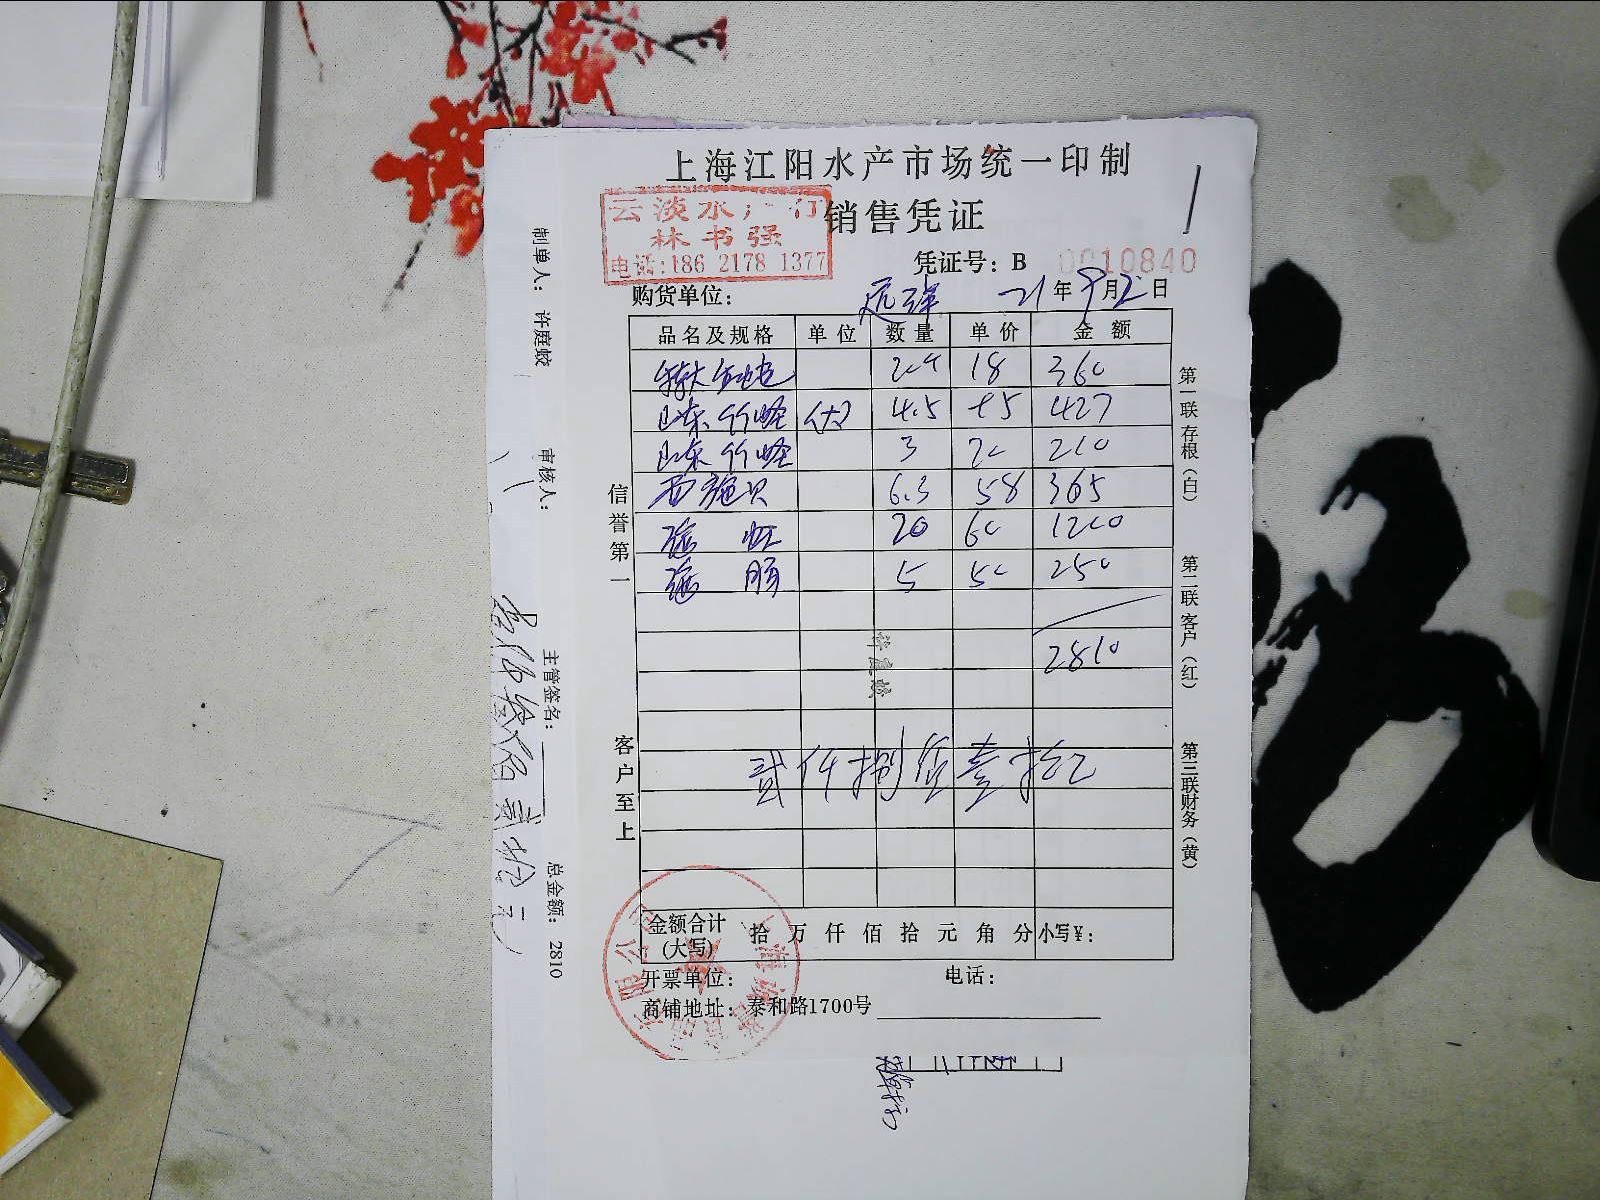 上海江阳水产市场统一印制
销售凭证
云淡水
林书强
电话:186 2178 1377
凭证号: B 0010840
购货单位:
21年9月2日
品名及规格 单位 数量 单价 金额
18 360
山东竹蛏 4.5 95 427
山东竹蛏 3 70 210
西施贝 6.3 58 365
20 60 1200
5 50 250
2810
贰仟捌佰壹拾
金额合计(大写) 拾 万 仟 佰 拾 元 角 分 小写¥:
开票单位: 电话:
商铺地址: 泰和路1700号
信誉第一
客户至上
第一联存根(白)
第二联客户(红)
第三联财务(黄)
制单人: 许庭蛟
审核人:
主管签名:
总金额: 2810
许庭蛟